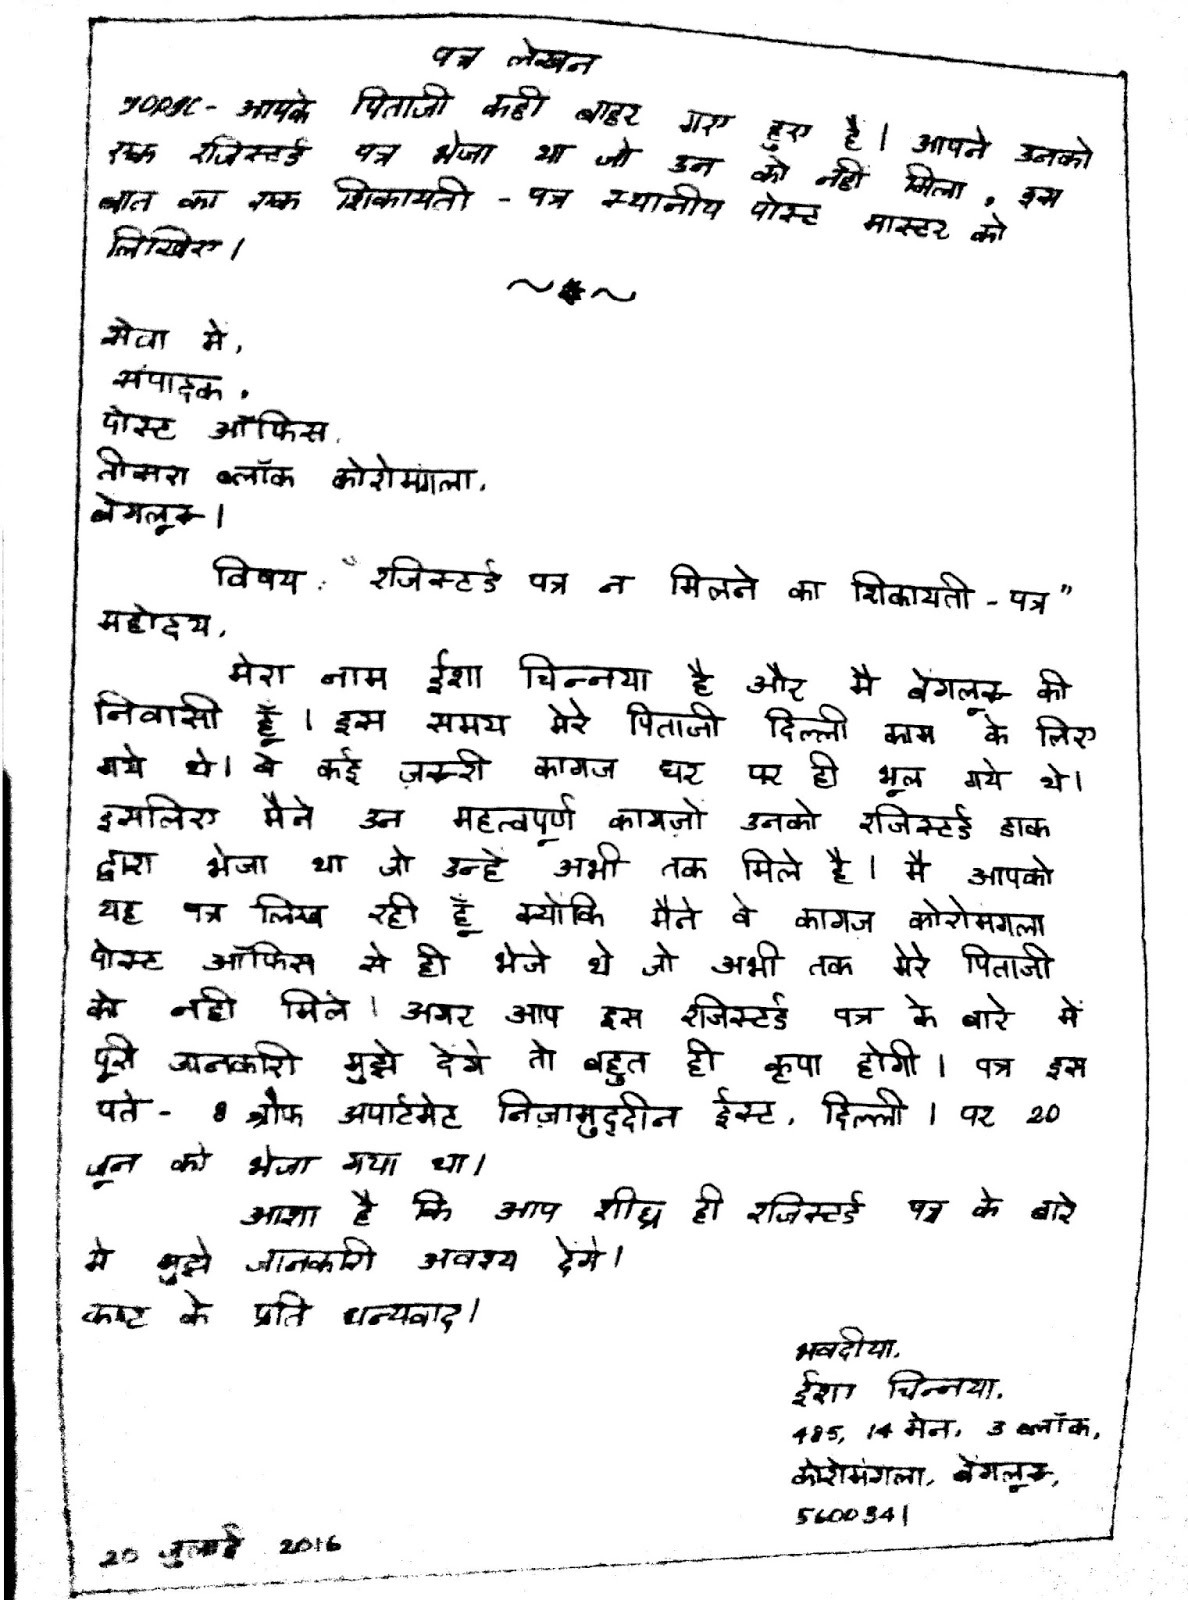 पत्र लेखन
TOPIC - आपके पिताजी कही बाहर गए हुए है। आपने उनको
एक रजिस्टर्ड पत्र भेजा था जो उन को नहीं मिला, इस
बात का एक शिकायती - पत्र स्थानीय पोस्ट मास्टर को
लिखिए।
सेवा में,
संपादक,
पोस्ट ऑफिस,
तीसरा ब्लॉक कोरोमंगला,
बेंगलूरू।
विषय : "रजिस्टर्ड पत्र न मिलने का शिकायती - पत्र"
महोदय,
मेरा नाम ईशा चिन्नया है और मै बेंगलूरू की
निवासी हूँ। इस समय मेरे पिताजी दिल्ली काम के लिए
गये थे। वे कई ज़रूरी कागज घर पर ही भूल गये थे।
इसलिए मैने उन महत्वपूर्ण कागज़ो उनको रजिस्टर्ड डाक
द्वारा भेजा था जो उन्हे अभी तक मिले है। मै आपको
यह पत्र लिख रही हूँ क्योंकि मैने वे कागज कोरोमंगला
पोस्ट ऑफिस से ही भेजे थे जो अभी तक मेरे पिताजी
को नही मिले। अगर आप इस रजिस्टर्ड पत्र के बारे में
पूरी जानकारी मुझे देंगे तो बहुत ही कृपा होगी। पत्र इस
पते - 8 ग्रौफ अपार्टमेट निज़ामुद्दीन ईस्ट, दिल्ली। पर 20
जून को भेजा गया था।
आशा है कि आप शीघ्र ही रजिस्टर्ड पत्र के बारे
मे मुझे जानकारी अवश्य देंगे।
कष्ट के प्रति धन्यवाद।
भवदीया,
ईशा चिन्नया,
485, 14 मेन, 3 ब्लॉक,
कोरोमंगला, बेंगलूरू,
560034।
20 जुलाई 2016